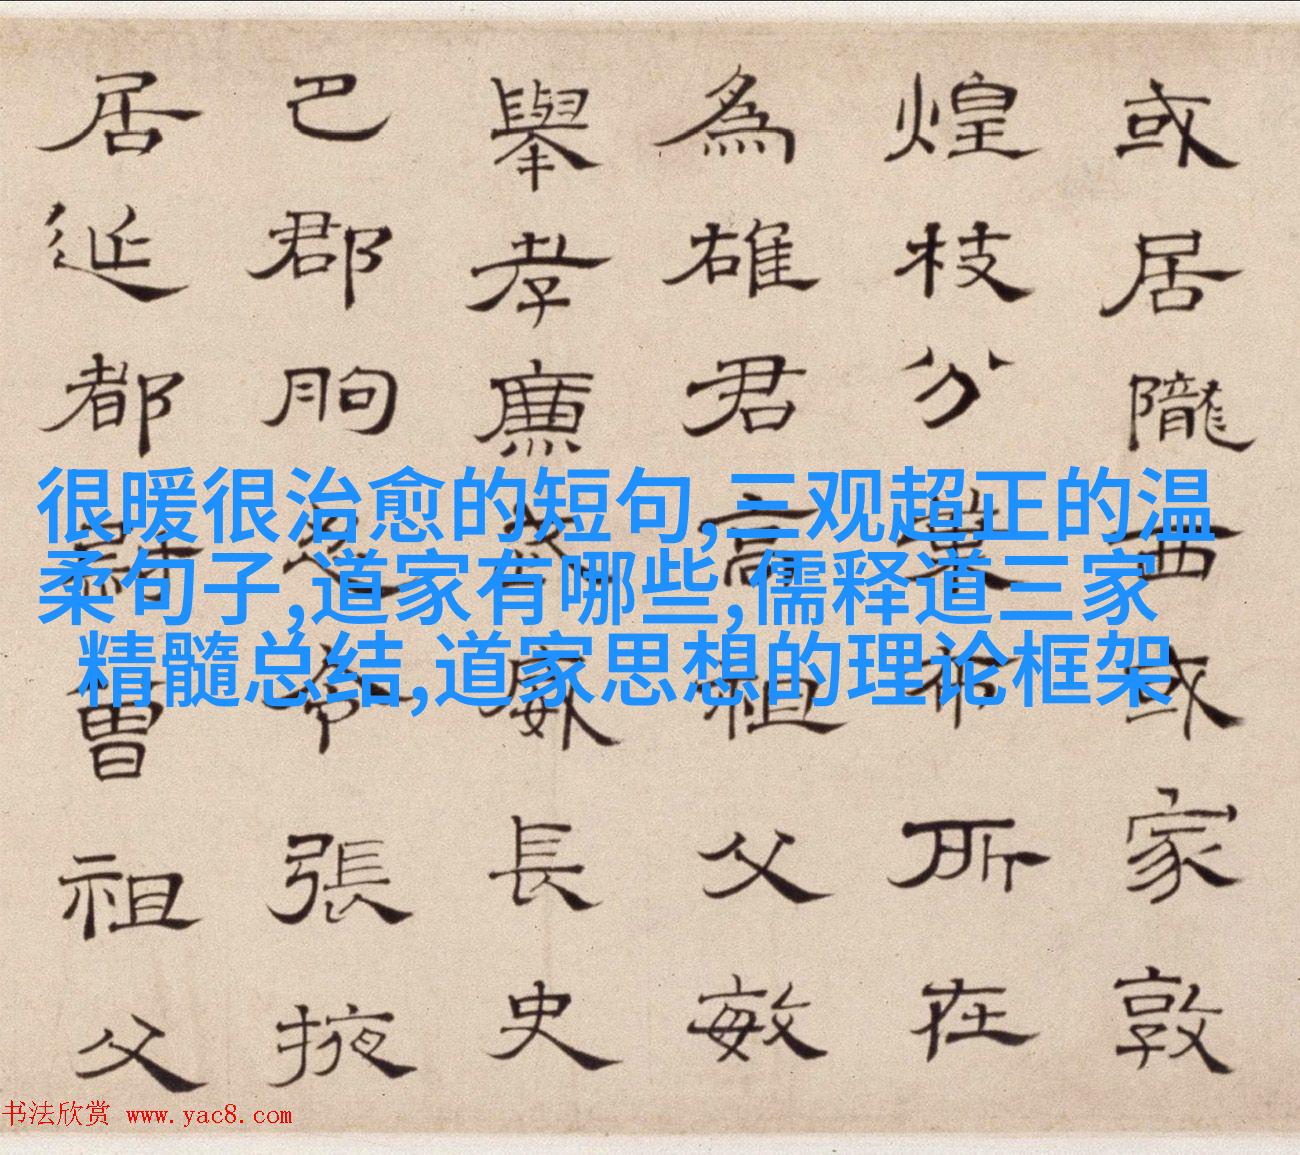 或居隴西或家敦
煌枝分葉布所在
為雄君高祖父敏
舉孝廉武威長史
巴郡朐忍令張掖
居延都尉曾祖父
很暖很治愈的短句,三观超正的温
柔句子,道家有哪些,儒释道三家
精髓总结,道家思想的理论框架
书法欣赏 www.yac8.com